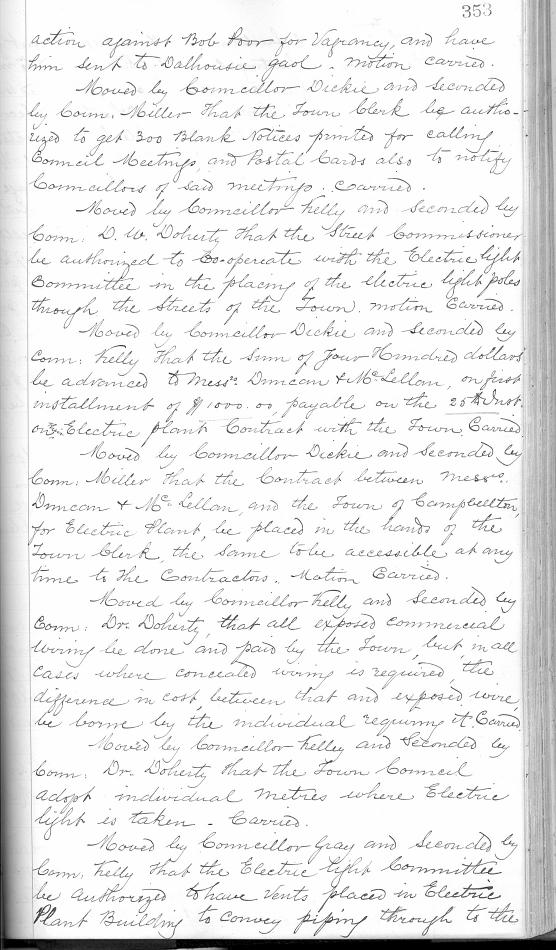 353
action against Bob Poor for Vagrancy, and have
him sent to Dalhousie gaol. motion carried.
Moved by Councillor Dickie and Seconded
by Coun: Miller that the Town Clerk be autho-
rized to get 300 Blank Notices printed for calling
Council Meetings, and Postal Cards also to notify
Councillors of said meetings. Carried.
Moved by Councillor Kelly and seconded by
Coun: D. W. Doherty that the Street Commissioner
be authorized to Co-opereate with the Electric light
Committee in the placing of the electric light poles
through the Streets of the Town. motion Carried.
Moved by Councillor Dickie and Seconded by
Coun: Kelly that the Sum of Four Hundred dollars
be advanced to Messrs. Duncan & McLellan, on first
installment of $1000.00, payable on the 20th Inst.
on Electric plant Contract with the Town. Carried
Moved by Councillor Dickie and Seconded by
Coun: Miller that the Contract between Messrs.
Duncan & McLellan, and the Town of Campbellton,
for Electric Plant, be placed in the hands of the
Town Clerk, the same to be accessible at any
time to the Contractors. Motion Carried.
Moved by Councillor Kelly and Seconded by
Coun: Dr. Doherty, that all exposed commercial
wiring be done and paid by the Town, but in all
cases where concealed wiring is required, the
difference in cost, between that and exposed wire,
be borne by the individual requiring it. Carried
Moved by Councillor Kelley and Seconded by
Coun: Dr. Doherty that the Town Council
adopt individual metres where Electric
light is taken - Carried.
Moved by Councillor Gray and Seconded by
Coun. Kelly that the Electric light Committee
be authorized to have Vents placed in Electric
Plant Building to convey piping through to the